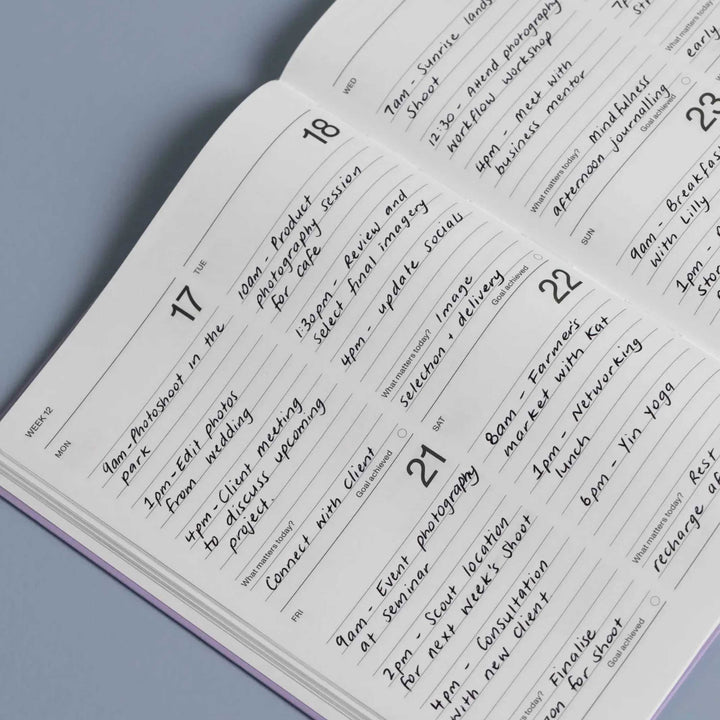 WEEK 12
MON
17
9am-Photoshoot in the
park
1pm-Edit photos
from wedding
4pm-Client meeting
to discuss upcoming
project.
What matters today?
Connect with Client
Goal achieved
TUE
18
10am - Product
photography session
for cafe
1:30pm - Review and
select final imagery
4pm - update socials
What matters today? Image
selection + delivery
Goal achieved
WED
7am - Sunrise
Shoot
12:30 - Attend photography
workflow workshop
4pm - meet with
business mentor
What matters today? Mindfulness
afternoon journalling
Goal achieved
7p
What matters today?
early
FRI
21
9am - Event photography
at seminar
2pm - Scout location
for next week's shoot
4pm - Consultation
with new client
today? Finalise
for shoot
Goal achieved
SAT
22
8am - Farmer's
market with Kat
1pm - Networking
lunch
6pm - Yin Yoga
What matters today? Rest
recharge
SUN
23
9am - Breakfas
with Lilly
1pm -